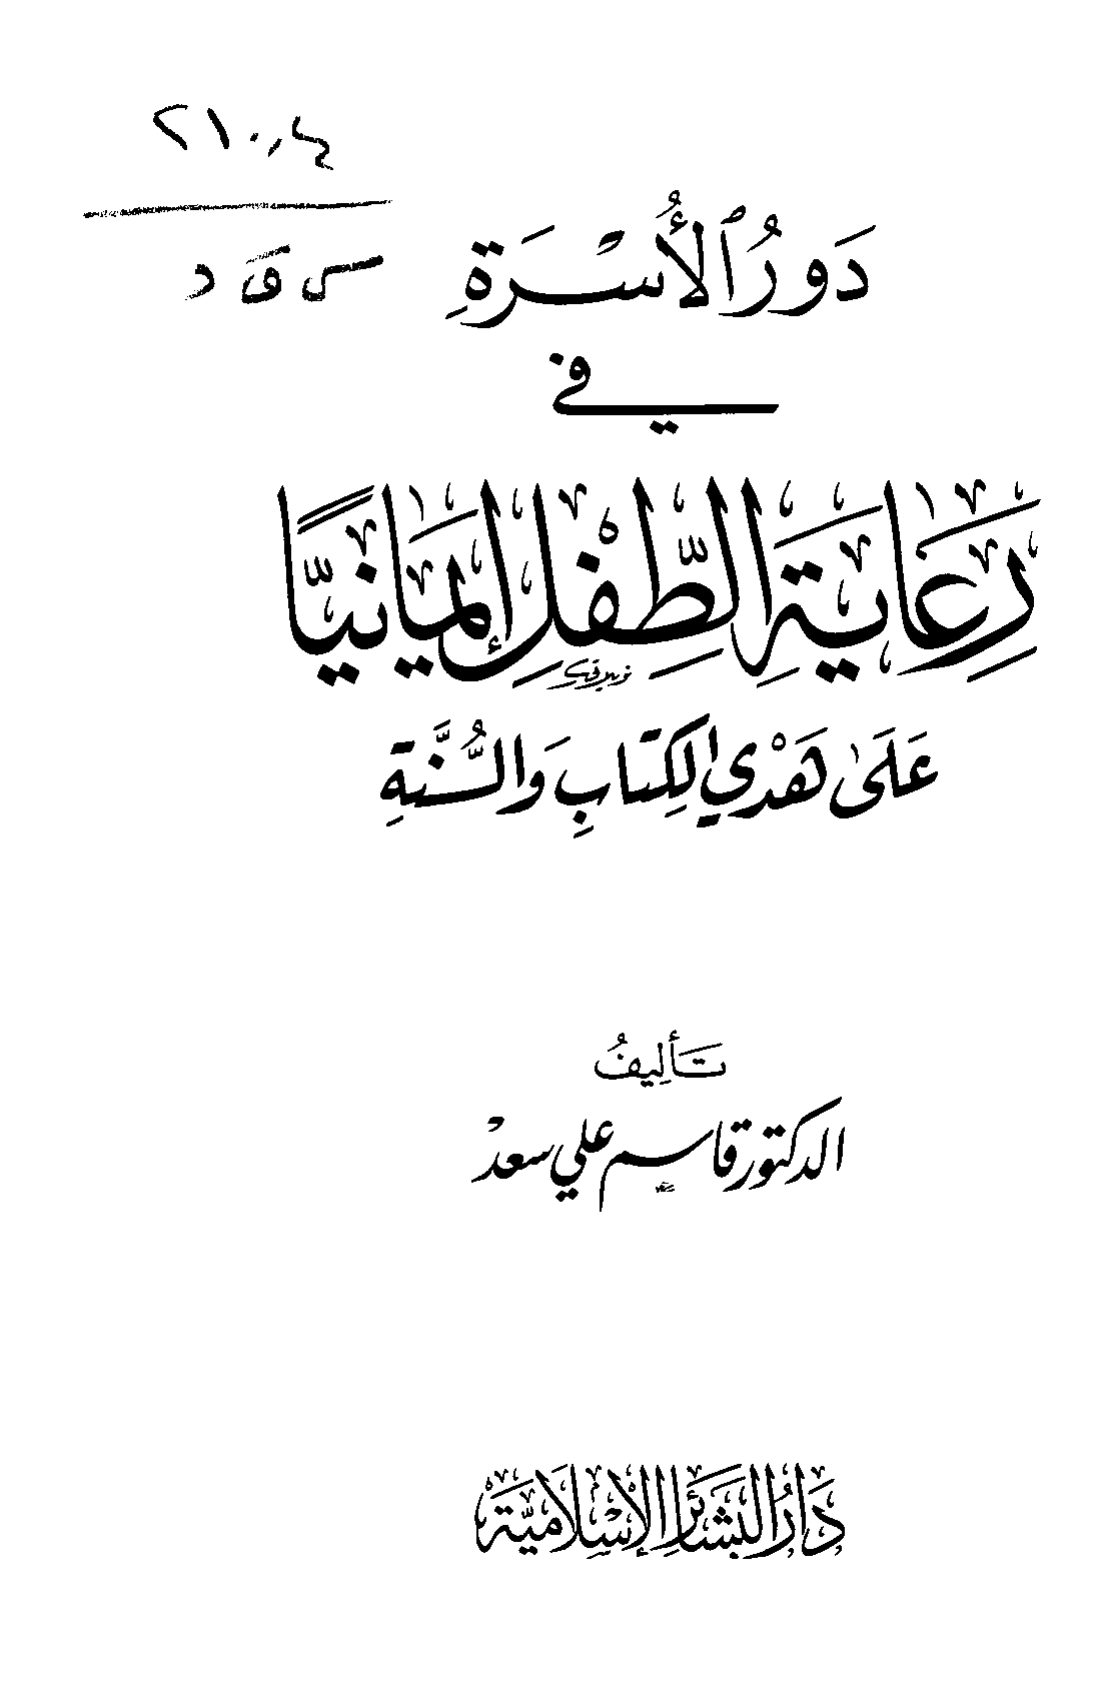 ٢١٠,٤
س ق د
دَورُ ٱلأُسْرَةِ
في
رِعَايَةِ الطِّفْلِ إيمَانِيًّا
عَلَىٰ هَدْيِ الكِتَابِ وَالسُّنَّةِ
تَأليفُ
الدكتور قاسم علي سعدْ
دَارُ البَشَائِرِ الإِسْلَامِيَّة